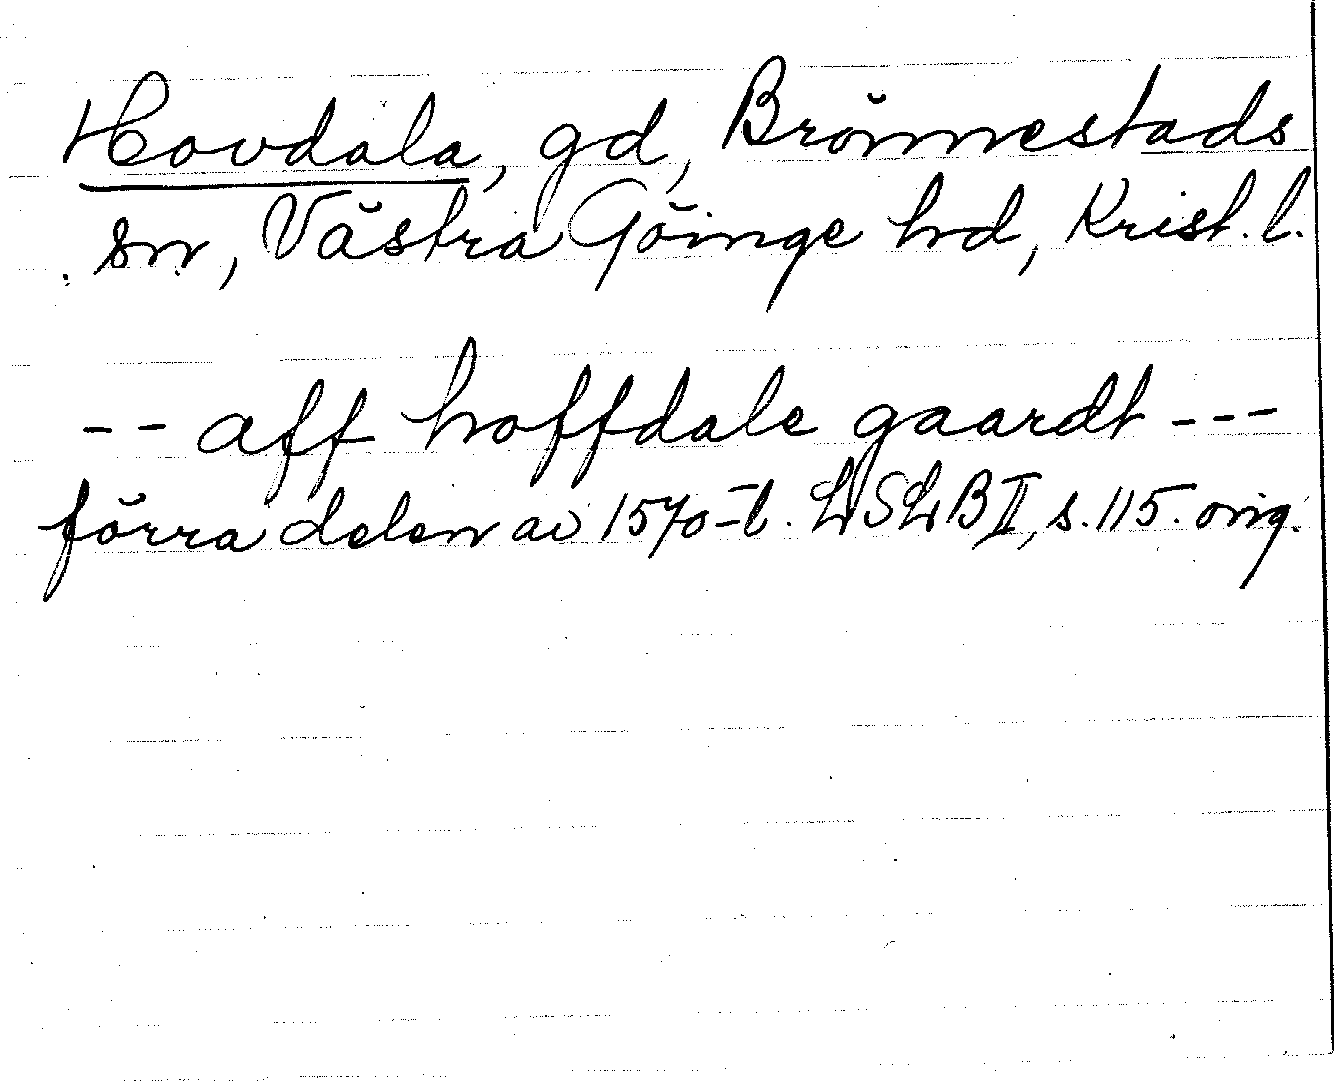 Hovdala, gd, Brönnestads
sn, Västra Göinge hd, Krist. l.
-- aff hoffdale gaardt ---
förra delen av 1570-t. LSLB II, s. 115. orig.